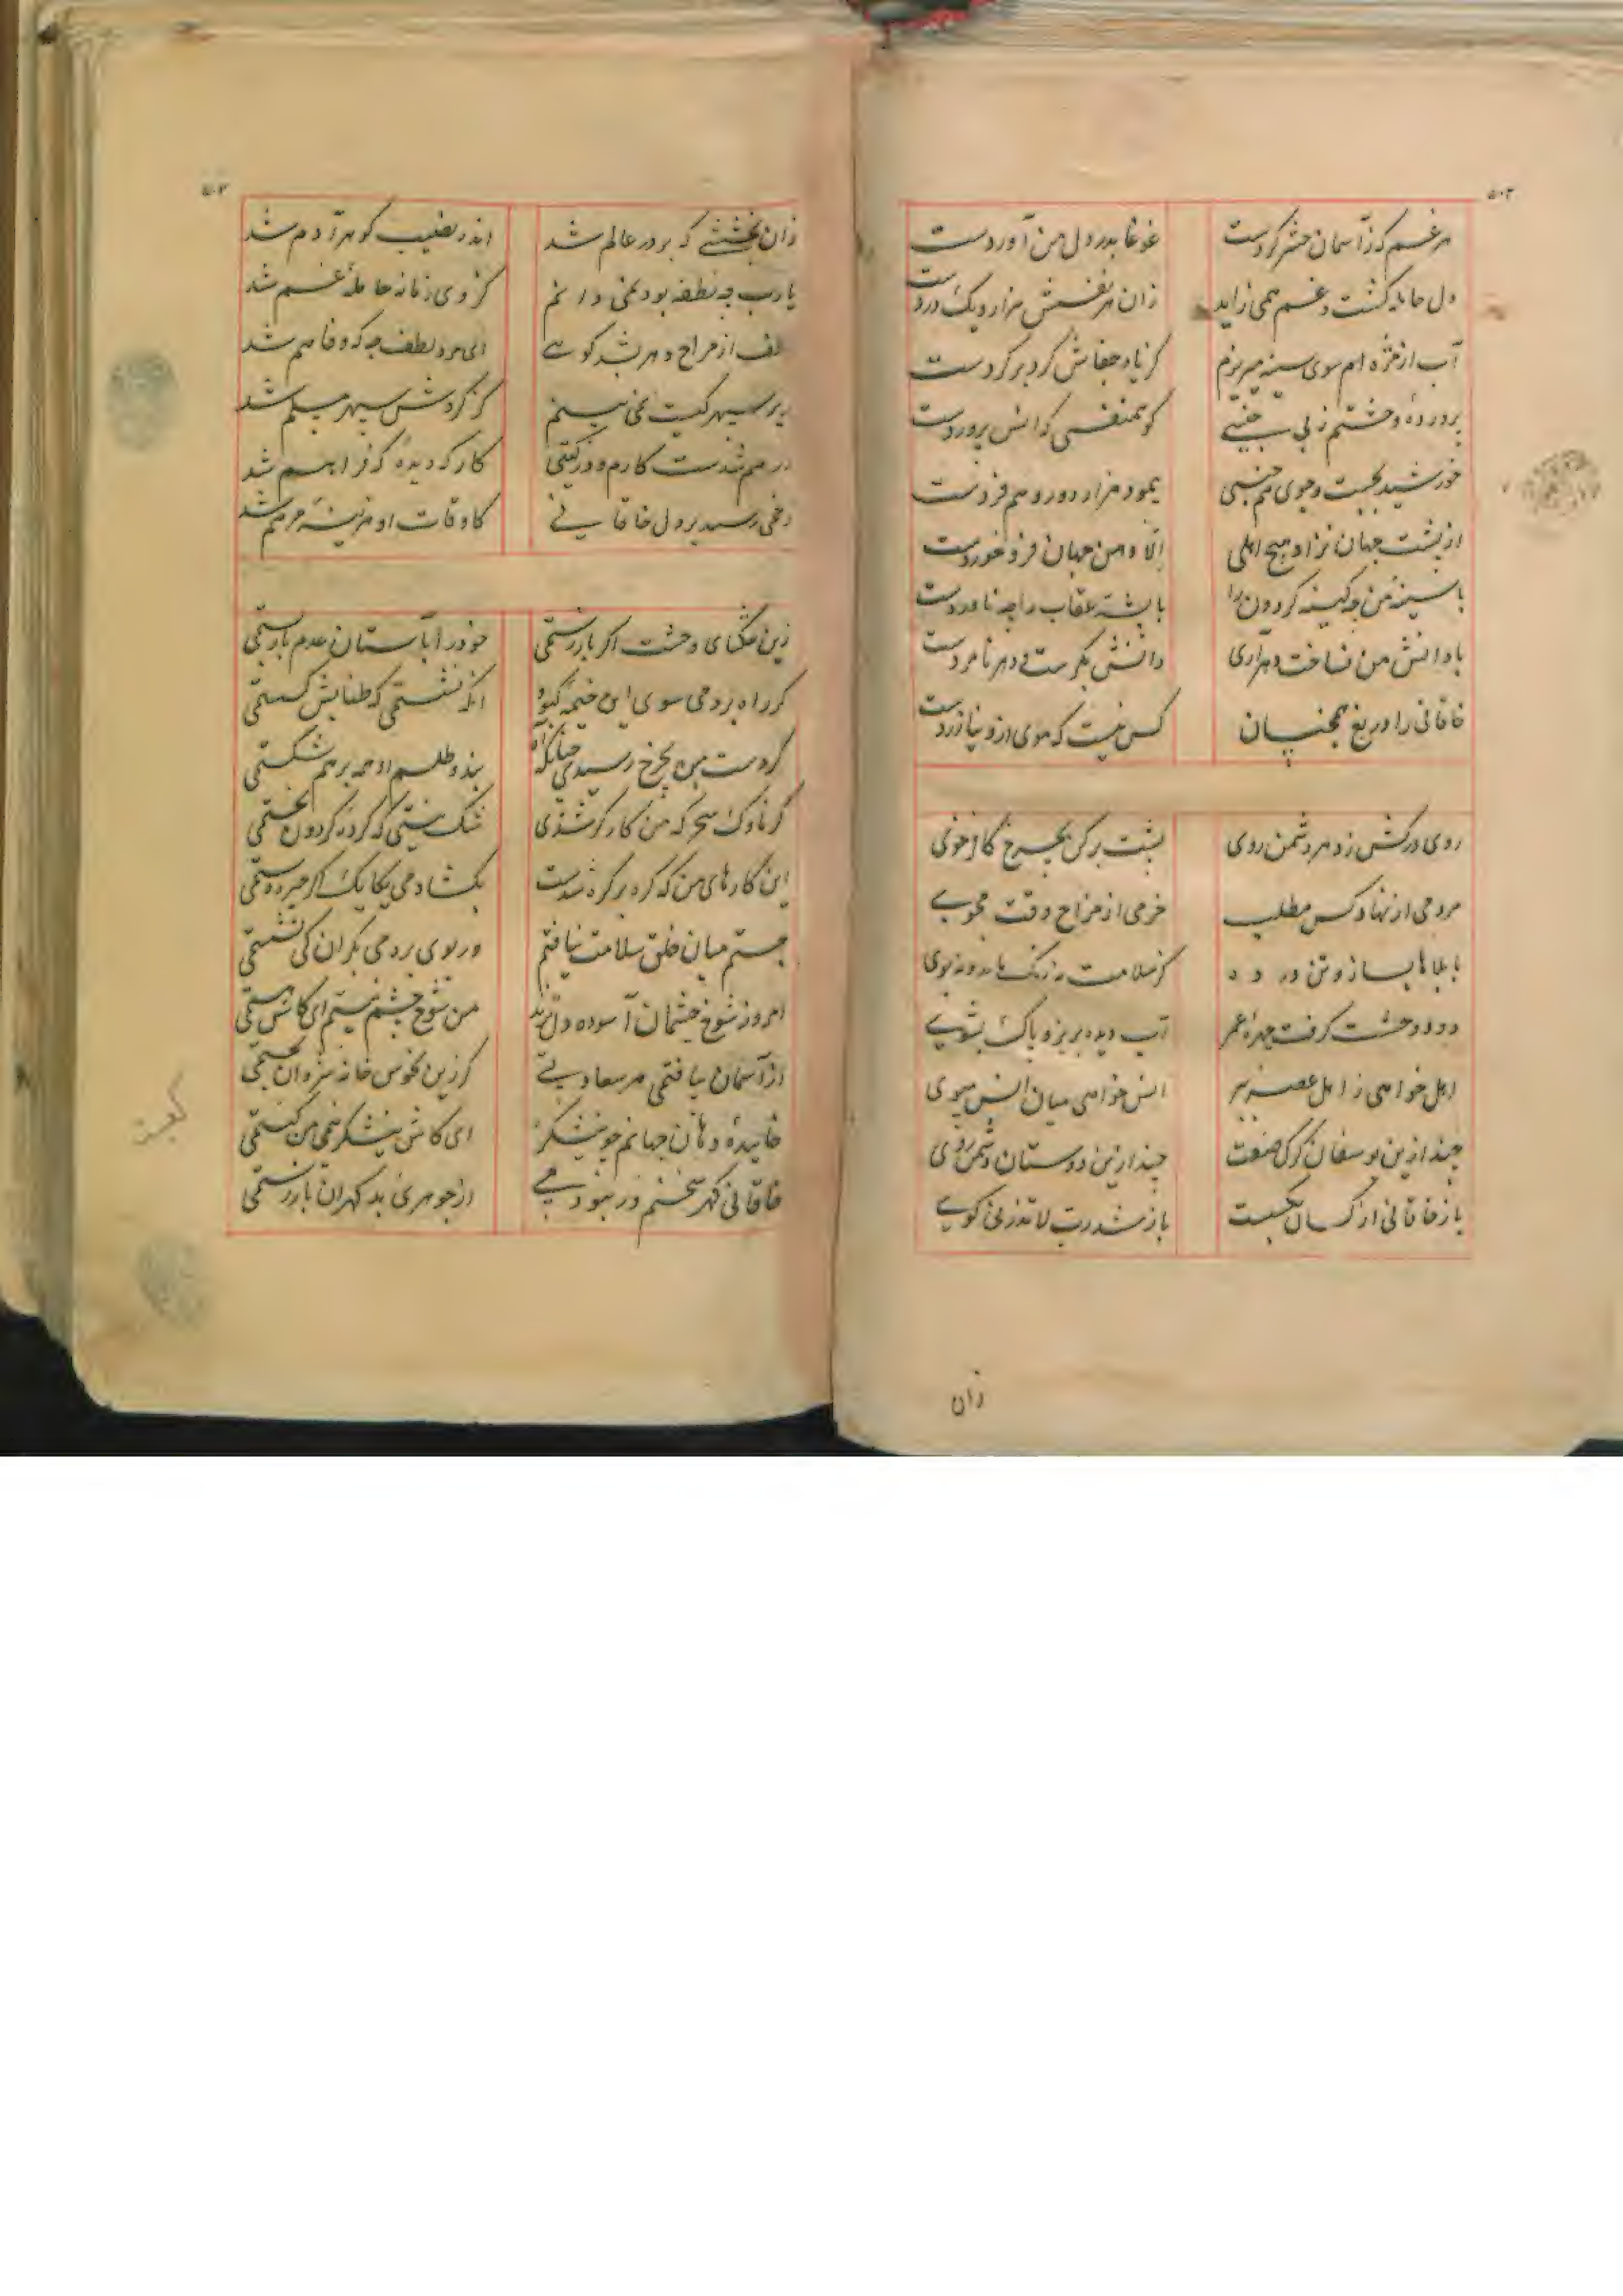 ۵۰۳
هر غم که ز آسمان حشر کردست غوغا بدر دل من آوردست
دل حامله گشت و غم همی زاید زان هر نفسش هزار و یک دردست
آب از مژه ام سوی سینه میریزم کز باد جفاش گرد بر کردست
پرورده وحشتم ز بی جنسی کو همنفسی که انس پروردست
خورشید بجست و جوی هم جنسی پیمود هزار دور و هم فردست
از پشت جهان نزاد هیچ اهلی الا و من جهان فرو خوردست
با سینه من چه کینه گردون را با پشه عقاب را چه ناوردست
با دانش من نساخت دهر آری دانش بکرست و دهر نامردست
خاقانی را دریغ همچنین سان کس نیست که موی ازو نیازردست
روی درکش ز دهر دشمن روی پشت بر کن بچرخ کافر خوی
مردمی از نهاد کس مطلب خرمی از مزاج وقت مجوی
با بلاها بساز و تن در ده کز سلامت نه رنگ ماند و نه بوی
دود وحشت گرفت چهره عمر آب دیده بریز و پاک بشوی
اهل خواهی ز اهل عصر ببر انس خواهی میان انس مپوی
چند ازین یوسفان گرگ صفت چند ازین دوستان دشمن روی
باز خاقانی از کسان بگسست باز شد رب لا تذرنی گوی
زان
۵۰۴
زان بخششی که بر در عالم شد اندر نصیب گوهر آدم شد
یا رب چه نطفه بود نمی دانم کز وی زمانه حامله غم شد
از مزاج دهر بشد گوئی ای مرد لطف چه که وفا هم شد
سپهر کیست نمی بینم کز گردش سپهر مسلم شد
درهم شدست کارم و در گیتی کار که دیده که فراهم شد
زخمی رسید بر دل خاقانی کاوقات او هزینه مرهم شد
زین تنگنای وحشت اگر باز رستمی خود را بآستان عدم باز بستمی
گر راه بردمی سوی این خیمه کبود آنگه نشستمی که طنابش گسستمی
گر دست من بچرخ رسیدی چنانکه آه بند و طلسم او همه بر هم شکستمی
گر ناوک سحر که من کارگر شدی شک نیستی که گرده گردون بخستمی
این کارهای من که گره بر گره شدست بگشادمی یکایک اگر چیره دستمی
جستم میان خلق سلامت نیافتم ور بوی بردمی بکران کی نشستمی
امروز شوخ چشمان آسوده دل ترند من شوخ چشم نیستم ای کاش هستمی
از آسمان بیافتمی هر سعادتی گر زین نحوس خانه شروان بجستمی
خائیده دهان جهانم چو نیشکر ای کاش نیشکر نمی من کبستمی
خاقانی گهر سخنم ور نبودمی از جوهری بد گهران باز رستمی